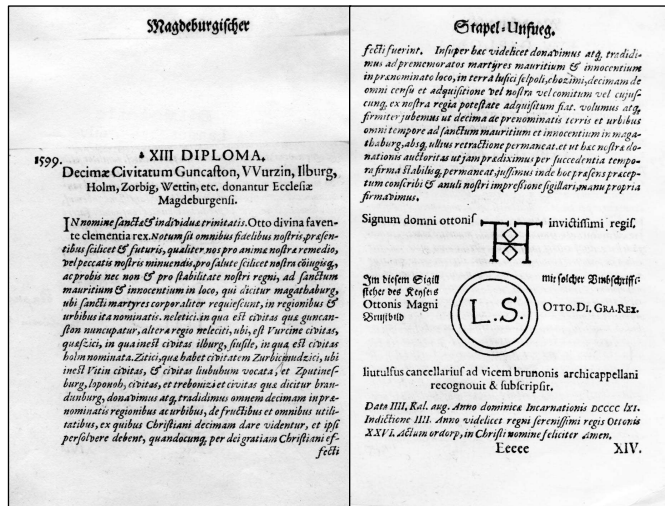 Magdeburgischer
1599.
XIII DIPLOMA.
Decimæ Civitatum Guncaston, VVurzin, Ilburg,
Holm, Zorbig, Wettin, etc. donantur Ecclesiæ
Magdeburgensi.
IN nomine sanctæ & individuæ trinitatis. Otto divina faven-
te clementia rex. Notum sit omnibus fidelibus nostris, præsen-
tibus scilicet & futuris, qualiter nos pro animæ nostræ remedio,
vel peccatis nostris minuendis, pro salute scilicet nostra cöiugisq;
ac probis nec non & pro stabilitate nostri regni, ad sanctum
mauritium & innocentium in loco, qui dicitur magathaburg,
ubi sancti martyres corporaliter requiescunt, in regionibus &
urbibus ita nominatis. neletici. in qua est civitas quæ guncan-
ston nuncupatur, altera regio neleciti, ubi, est Vurcine civitas,
quæszici, in qua inest civitas ilburg, siusile, in qua est civitas
holm nominata. Zitici, quæ habet civitatem Zurbici, nudzici, ubi
inest Vitin civitas, & civitas liubuhun vocata, et Zputines-
burg, loponoh, civitas, et treboniz et civitas quæ dicitur bran-
dunburg, donavimus atq; tradidimus omnem decimam in præ-
nominatis regionibus ac urbibus, de fructibus et omnibus utili-
tatibus, ex quibus Christiani decimam dare videntur, et ipsi
persolvere debent, quandocunq; per dei gratiam Christiani ef-
fecti
Stapel-Unfueg.
fecti fuerint. Insuper hæc videlicet donavimus atq; tradidi-
mus ad prememoratos martyres mauritium & innocentium
in prænominato loco, in terra lusici selpoli, chozimi, decimam de
omni censu et adquisitione vel nostra vel comitum vel cujus-
cunq; ex nostra regia potestate adquisitum fiat. volumus atq;
firmiter jubemus ut decima de prenominatis terris et urbibus
omni tempore ad sanctum mauritium et innocentium in maga-
thaburg, absq; ullius retractione permaneat. et ut hæc nostræ do-
nationis auctoritas ut jam prædiximus per succedentia tempo-
ra firma stabilisq; permaneat, jussimus inde hoc præsens præcep-
tum conscribi & anuli nostri impressione sigillari, manu propria
firmavimus.
Signum domni ottonis invictissimi regis.
Im diesem Sigill
stehet des Keysers
Ottonis Magni
Brustbild
L.S.
mit solcher Umbschrifft:
OTTO. DI. GRA. REX.
liutulfus cancellarius ad vicem brunonis archicappellani
recognouit & subscripsit.
Data IIII, Kal. aug. Anno dominicæ Incarnationis DCCCC lxi.
Indictione IIII. Anno videlicet regni serenissimi regis Ottonis
XXVI. Actum ordorp, in Christi nomine feliciter Amen.
Eeeee XIV.